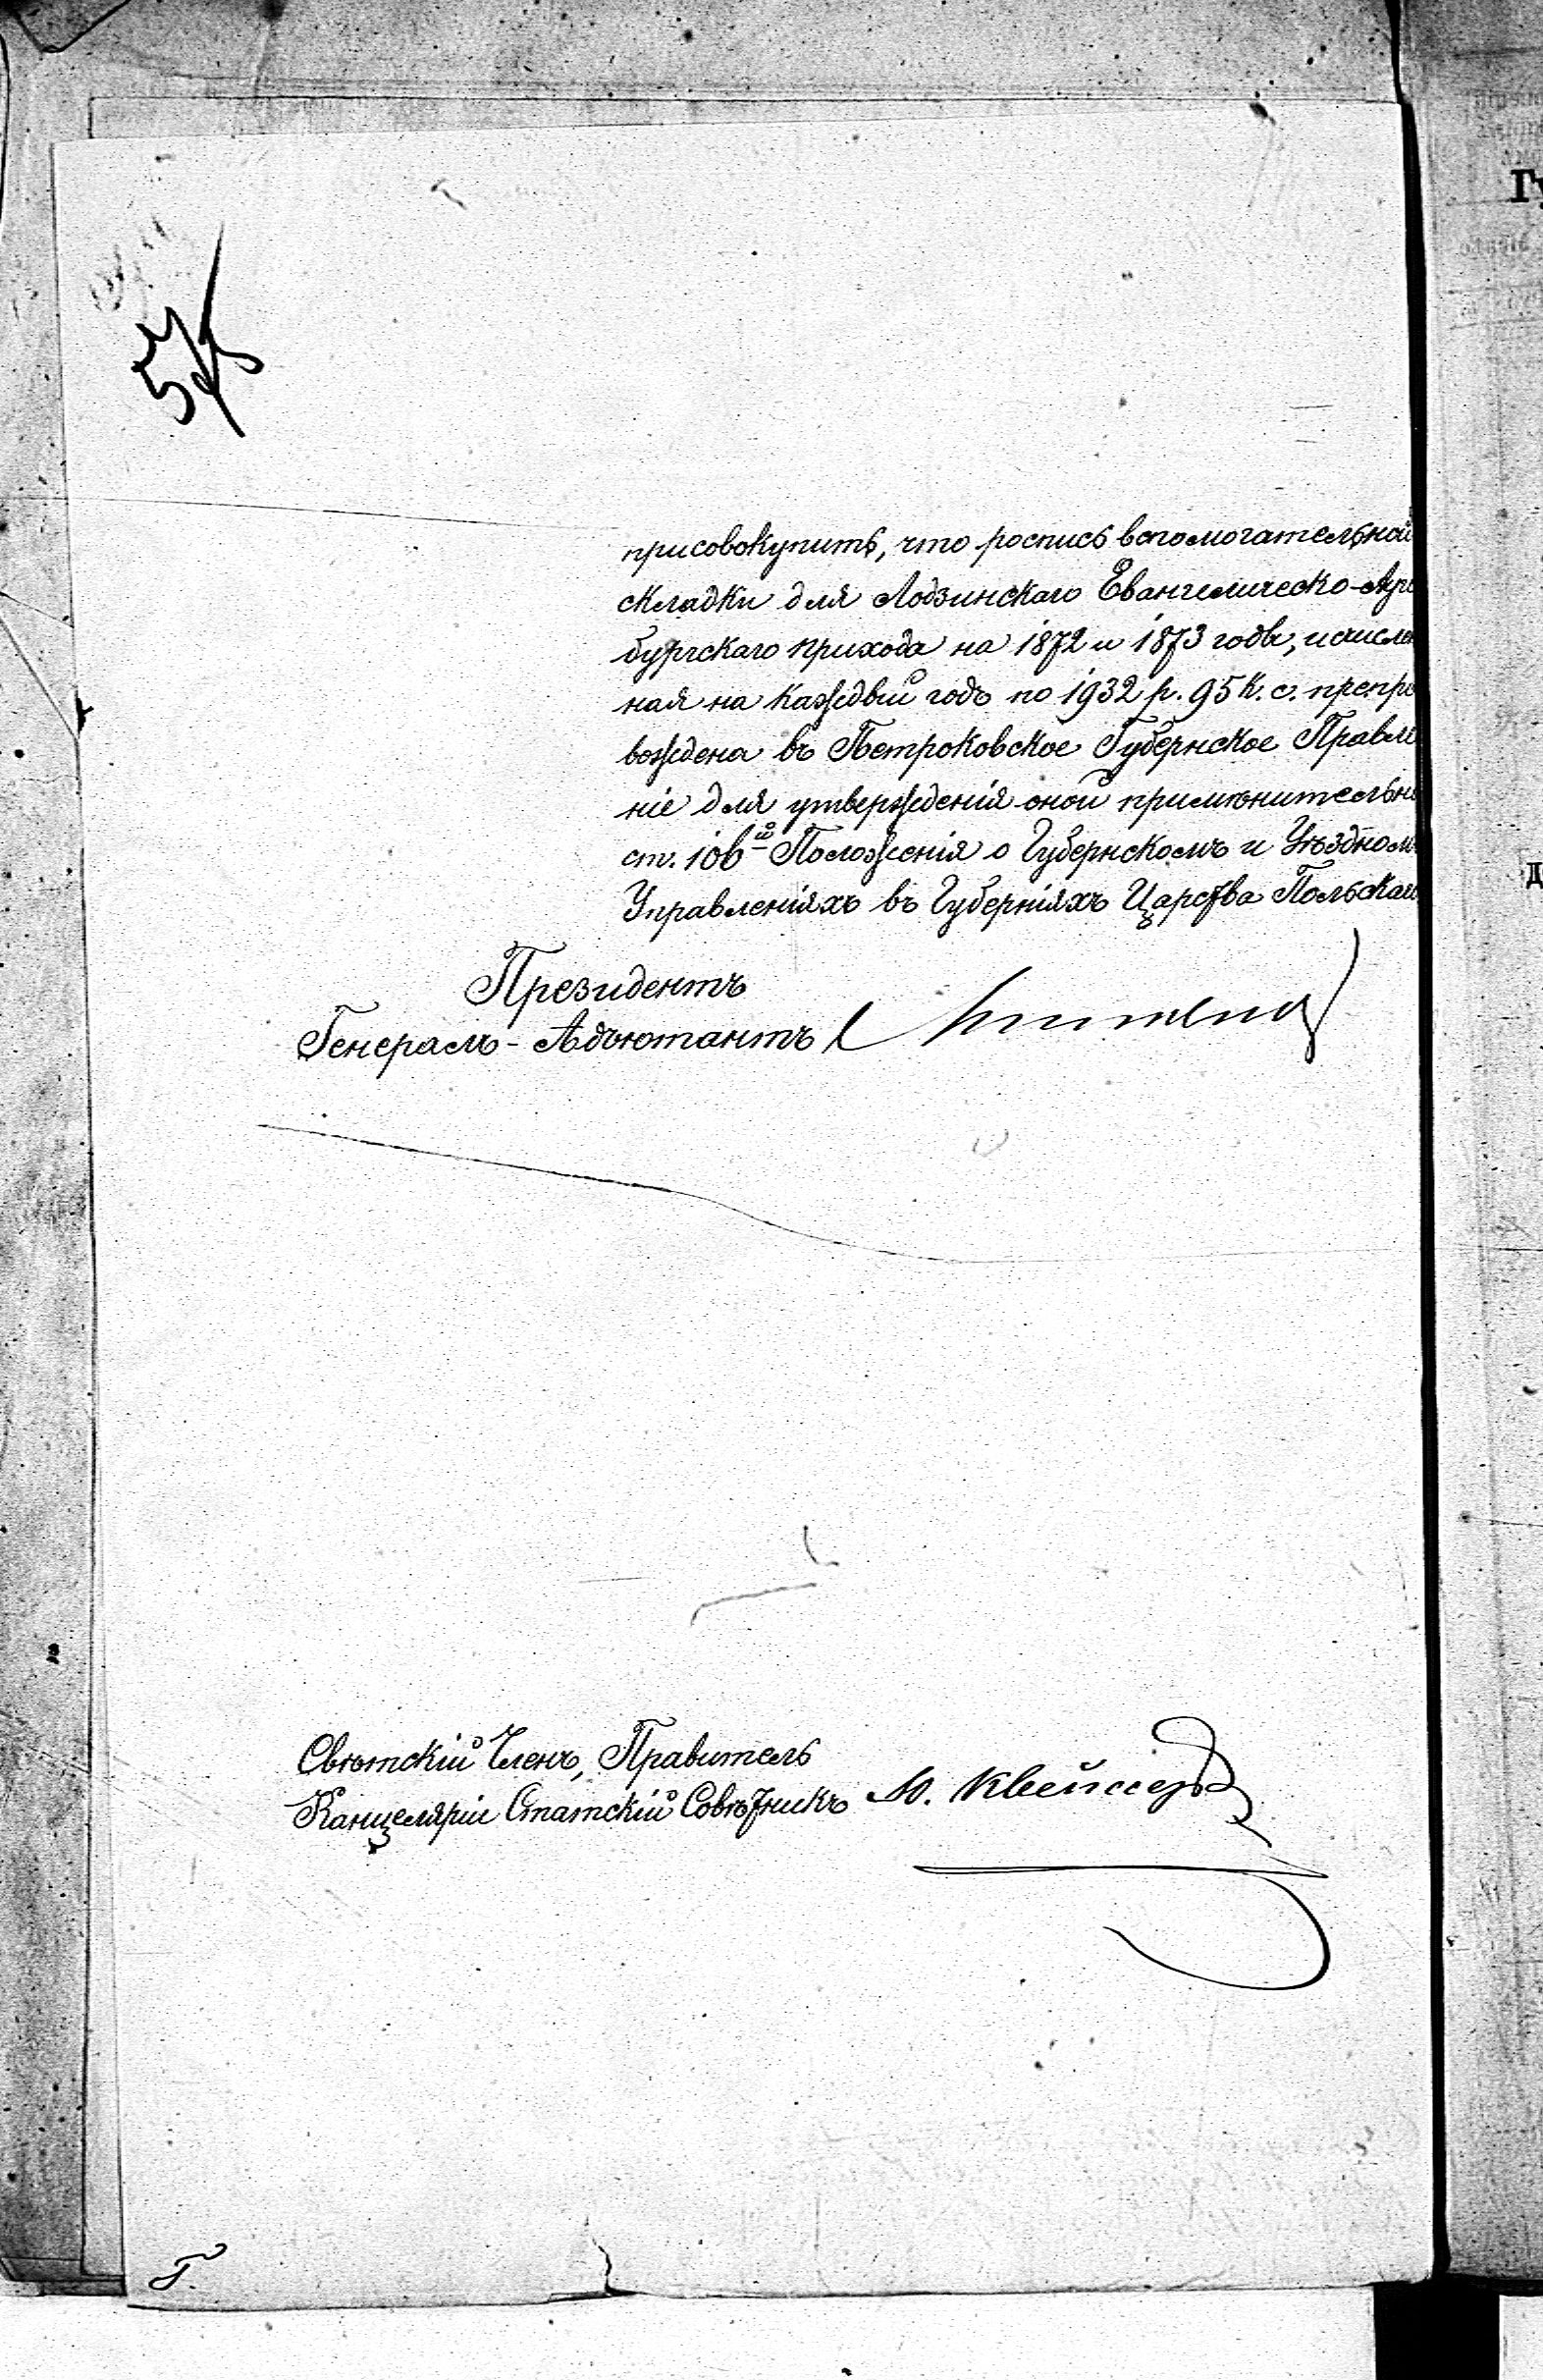 присовокупить, что роспись вспомогательной
складки для Лодзинскаго Евангелическо-Ауг
бургскаго прихода на 1872 и 1873 годы, исчислен
ная на каждый годъ по 1932 р. 95 к. с. препро
вождена въ Петроковское Губернское Правле
ніе для утвержденія оной примѣнительно
ст. 106ой Положенія о Губернскомъ и Уѣздномъ
Управленіяхъ въ Губерніяхъ Царства Польскаго
Президентъ
Генералъ-Адъютантъ
Свѣтскій Членъ, Правитель
Канцеляріи Статскій Совѣтникъ Ю.
Г.